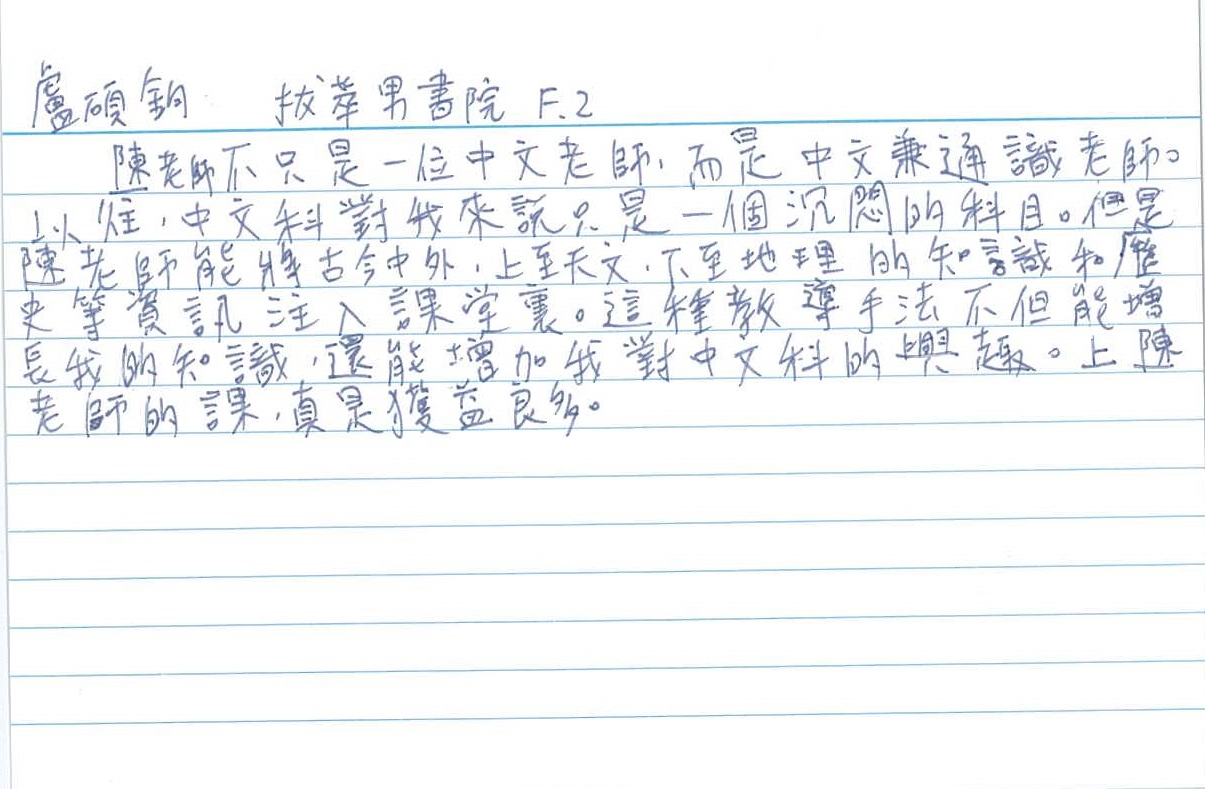 盧碩鈞 拔萃男書院 F.2
陳老師不只是一位中文老師,而是中文兼通識老師。
以往,中文科對我來說只是一個沉悶的科目。但是
陳老師能將古今中外,上至天文,下至地理的知識和歷
史等資訊注入課堂裏。這種教導手法不但能增
長我的知識,還能增加我對中文科的興趣。上陳
老師的課,真是獲益良多。